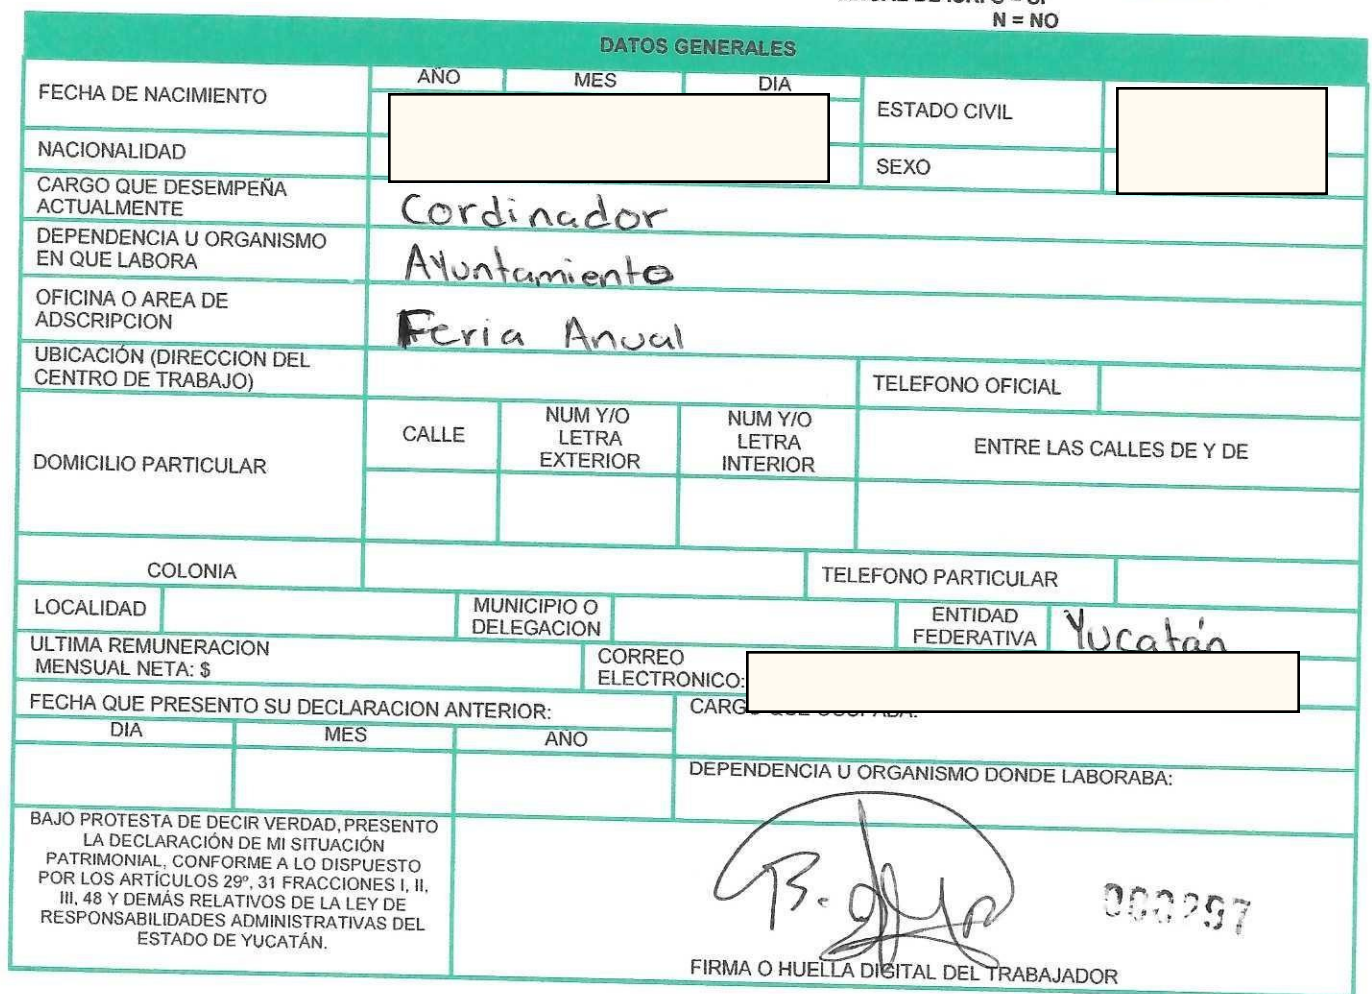 N = NO
DATOS GENERALES
FECHA DE NACIMIENTO
AÑO
MES
DIA
ESTADO CIVIL
NACIONALIDAD
SEXO
CARGO QUE DESEMPEÑA
ACTUALMENTE
Cordinador
DEPENDENCIA U ORGANISMO
EN QUE LABORA
Ayuntamiento
OFICINA O AREA DE
ADSCRIPCION
Feria Anual
UBICACIÓN (DIRECCION DEL
CENTRO DE TRABAJO)
TELEFONO OFICIAL
DOMICILIO PARTICULAR
CALLE
NUM Y/O
LETRA
EXTERIOR
NUM Y/O
LETRA
INTERIOR
ENTRE LAS CALLES DE Y DE
COLONIA
TELEFONO PARTICULAR
LOCALIDAD
MUNICIPIO O
DELEGACION
ENTIDAD
FEDERATIVA
Yucatán
ULTIMA REMUNERACION
MENSUAL NETA: $
CORREO
ELECTRONICO:
FECHA QUE PRESENTO SU DECLARACION ANTERIOR:
DIA
MES
AÑO
DEPENDENCIA U ORGANISMO DONDE LABORABA:
BAJO PROTESTA DE DECIR VERDAD, PRESENTO
LA DECLARACIÓN DE MI SITUACIÓN
PATRIMONIAL, CONFORME A LO DISPUESTO
POR LOS ARTÍCULOS 29º, 31 FRACCIONES I, II,
III, 48 Y DEMÁS RELATIVOS DE LA LEY DE
RESPONSABILIDADES ADMINISTRATIVAS DEL
ESTADO DE YUCATÁN.
000297
FIRMA O HUELLA DIGITAL DEL TRABAJADOR